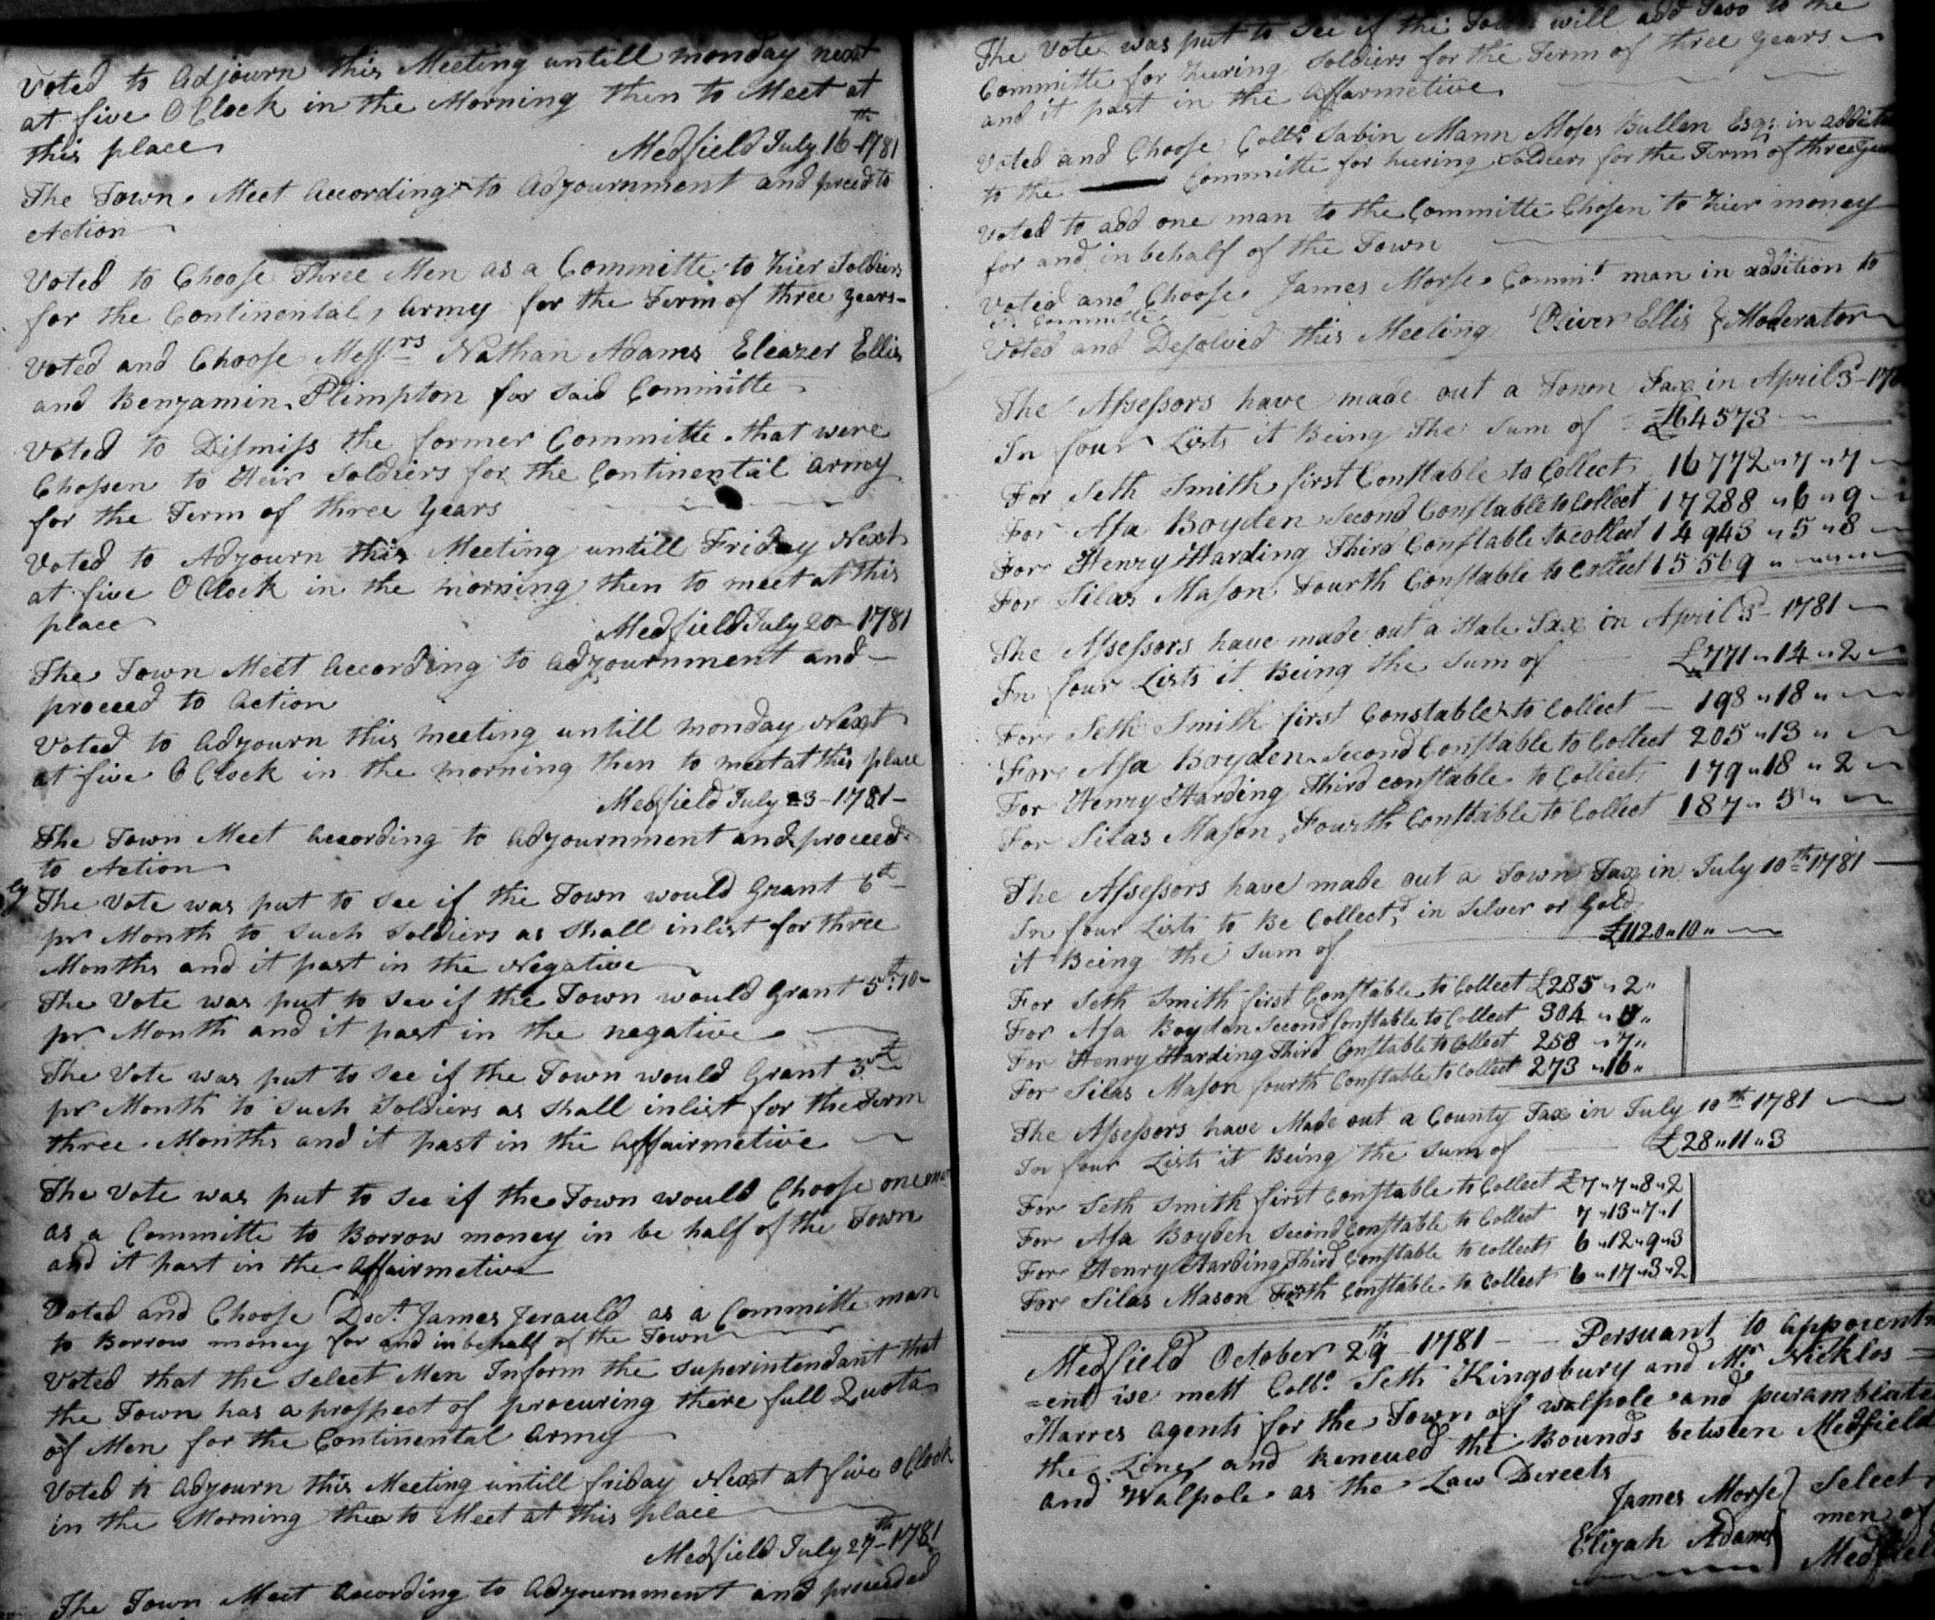 Voted to Adjourn this Meeting untill monday next
at five OClock in the Morning then to Meet at
this place
Medfield July 16th 1781
The Town Meet According to Adjournment and preed to
Action
Voted to Choose Three Men as a Committe to hier Soldiers
for the Continental Army for the Term of three years
Voted and Choose Messrs Nathan Adams Eleazer Ellis
and Benjamin Plimpton for said Committe
Voted to Dismiss the former Committe that were
Chossen to Heir Soldiers for the Continental Army
for the Term of three Years
Voted to Adjourn this Meeting untill Friday Next
at five OClock in the morning then to meet at this
place
Medfield July 20 1781
The Town Meet According to adjournment and
proceed to action
Voted to Adjourn this meeting untill monday Next
at five OClock in the morning then to meet at this place
Medfield July 23 - 1781 -
The Town Meet according to adjournment and proceed
to Action
The Vote was put to see if the Town would Grant 6
pr Month to such Soldiers as shall inlist for three
Months and it past in the Negative
The Vote was put to see if the Town would Grant 5 10
pr Month and it past in the negative
The Vote was put to see if the Town would Grant 5
pr Month to such Soldiers as shall inlist for the Term
three Months and it past in the affairmetive
The Vote was put to see if the Town would Choose one man
as a Committe to Borrow money in be half of the Town
and it past in the affairmetive
Voted and Choose Doct James Jerauld as a Committe man
to Borrow money for and in behalf of the Town
Voted that the Select Men Inform the superintendant that
the Town has a prosspect of procuring there full Quota
of Men for the Continental army
Voted to adjourn this Meeting untill friday Next at five oClock
in the Morning then to Meet at this place
Medfield July 27th 1781
The Town Meet according to adjournment and proceeded
The Vote was put to see if the Town will add two to the
Committe for hiering Soldiers for the Term of three years
and it past in the affarmetive
Voted and Choose Collo Sabin Mann Moses Bullen Esqr in addition
to the Committe for hiering Soldiers for the Term of three years
Voted to add one man to the Committe Chosen to hier money
for and in behalf of the Town
Voted and Choose James Morse Commit man in addition to
sd Committe
Voted and Desolved this Meeting Oliver Ellis } Moderator
The Assessors have made out a Town Tax in April 3d 178
In four Lists it Being The sum of £64573
For Seth Smith first Constable to Collect 16772 " 7 " 7
For Asa Boyden Second Constable to Collect 17288 " 6 " 9
For Henry Harding Third Constable to collect 14943 " 5 " 8
For Silas Mason Fourth Constable to Collect 15569 "
The Assessors have made out a State Tax in April 3d 1781
In four Lists it Being the sum of £771 " 14 " 2
For Seth Smith first Constable to Collect 198 " 18 "
For Asa Boyden Second Constable to Collect 205 " 13 "
For Henry Harding Third constable to Collect 179 " 18 " 2
For Silas Mason Fourth Constable to Collect 187 " 5 "
The Assessors have made out a Town Tax in July 10th 1781
In four Lists to Be Collectd in Silver or Gold
it Being the Sum of £1120 " 10 "
For Seth Smith first Constable to Collect £285 " 2 "
For Asa Boyden Second Constable to Collect 304 "
For Henry Harding Third Constable to Collect 258 " 7 "
For Silas Mason fourth Constable to Collect 273 " 16 "
The Assessors have Made out a County Tax in July 10th 1781
In four Lists it Being the Sum of £28 " 11 " 3
For Seth Smith first Constable to Collect £7 " 7 " 8 " 2
For Asa Boyden Second Constable to Collect 7 " 13 " 7 " 1
For Henry Harding Third Constable to collect 6 " 12 " 9 " 3
For Silas Mason Forth Constable to Collect 6 " 17 " 3 " 2
Medfield October 29th 1781 Persuant to appointm
=ent we mett Collo Seth Kingsbury and Mr Nicklos
Harres agents for the Town of Walpole and purambleated
the Line and Renewed the Bounds between Medfield
and Walpole as the Law Directs
James Morse } Select
Elijah Adams } men of
Medfield